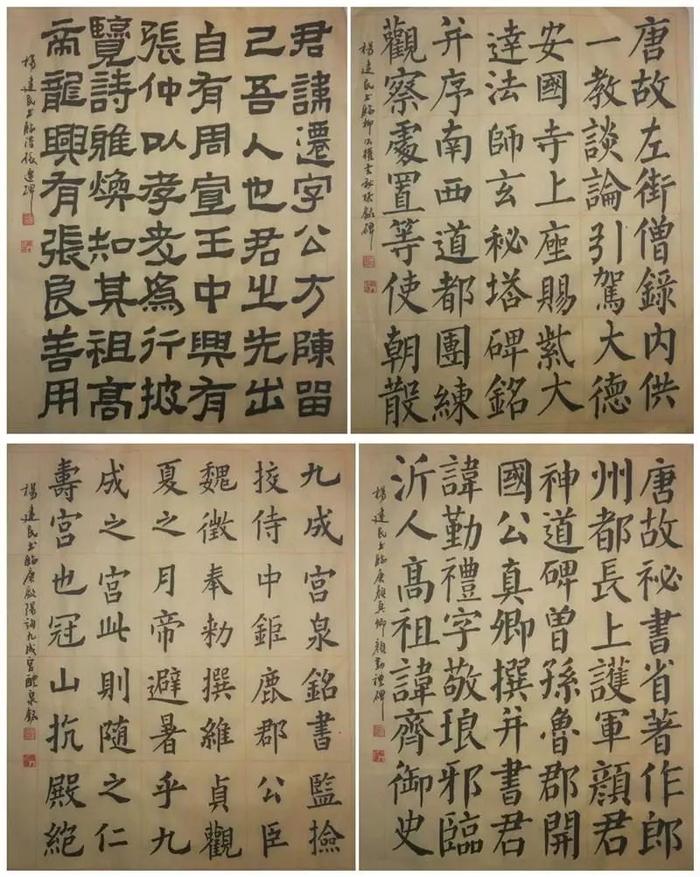 君諱遷字公方陳留
己吾人也君之先出
自有周宣王中興有
張仲以孝友為行披
覽詩雅煥知其祖高
帝龍興有張良善用
楊建民书臨漢張遷碑
唐故左街僧錄內供
一教談論引駕大德
安國寺上座賜紫大
達法師玄秘塔碑銘
并序南西道都團練
觀察處置等使朝散
楊建民书臨柳公權玄秘塔銘碑
九成宮泉銘書監撿
挍侍中鉅鹿郡公臣
魏徵奉勑撰維貞觀
夏之月帝避暑乎九
成之宮此則随之仁
壽宮也冠山抗殿絕
楊建民书臨唐歐陽詢九成宮醴泉銘
唐故祕書省著作郎
州都長上護軍顏君
神道碑曾孫魯郡開
國公真卿撰并書君
諱勤禮字敬琅邪臨
沂人高祖諱齊御史
楊建民书臨唐顏真卿顏勤禮碑